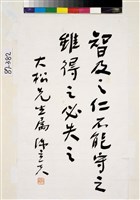 智及之仁不能守之
雖得之必失之
大松先生屬 陳立夫